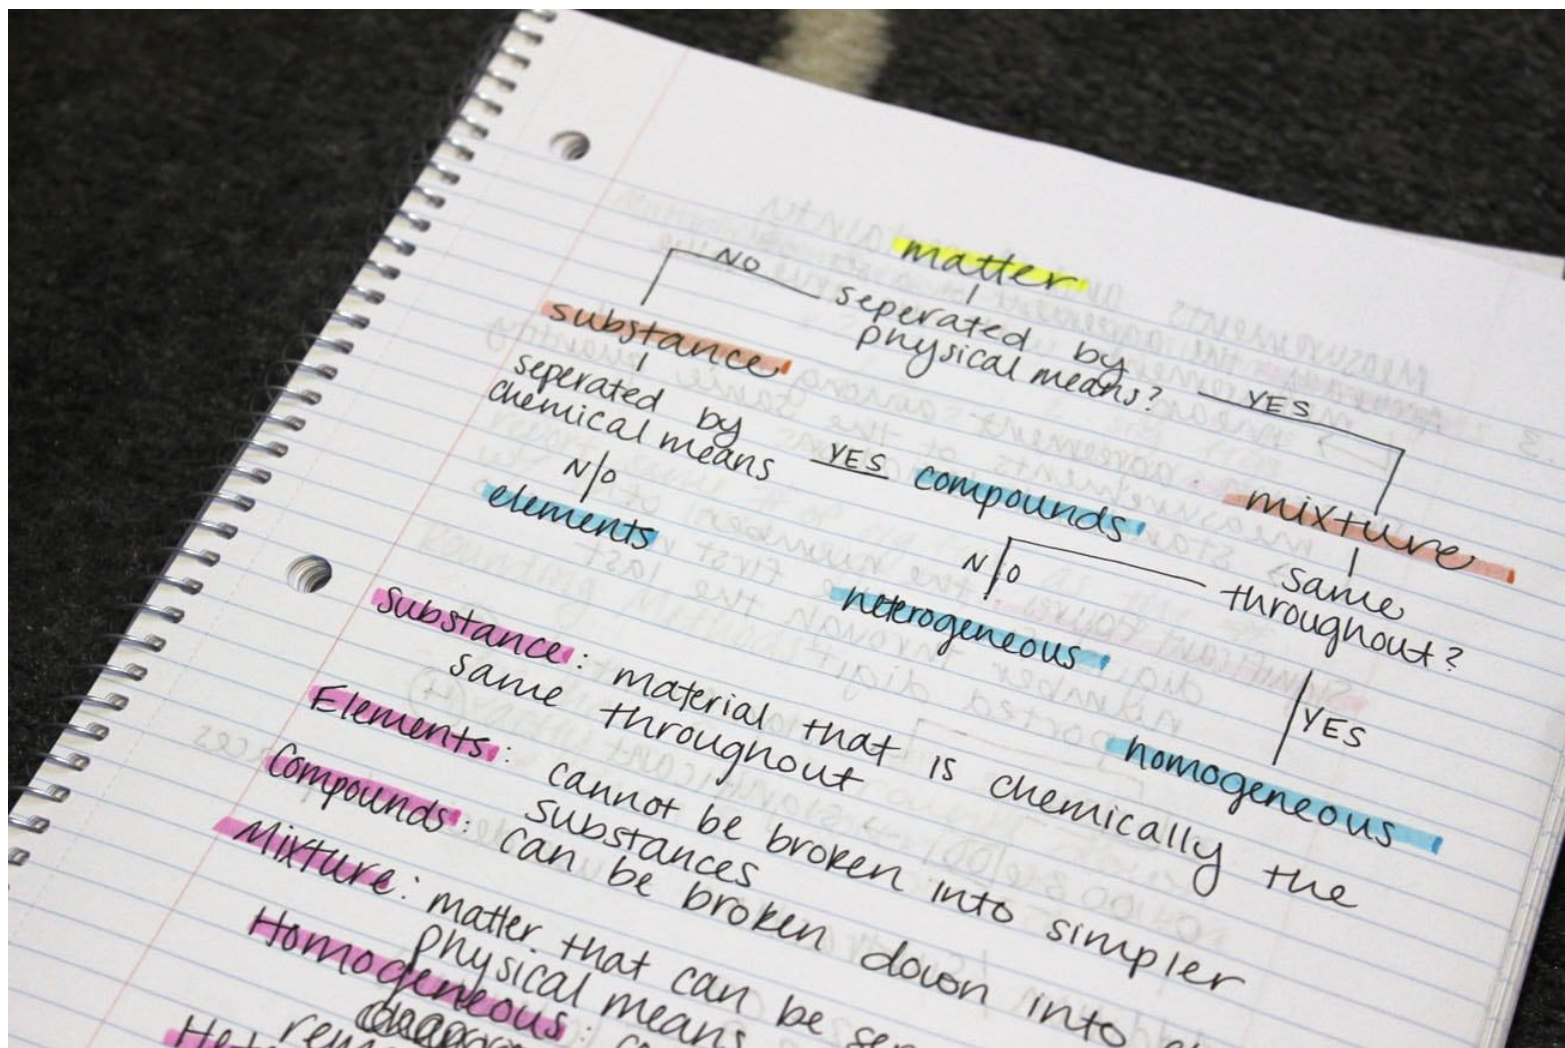 matter
NO
seperated by
physical means?
YES
substance
seperated by
chemical means
YES
compounds
mixture
NO
elements
same
throughout?
NO
heterogeneous
YES
homogeneous
Substance: material that is chemically the
same throughout
Elements: cannot be broken into simpler
substances
Compounds: can be broken down into
Mixture: matter that can be
physical means
Homogeneous: